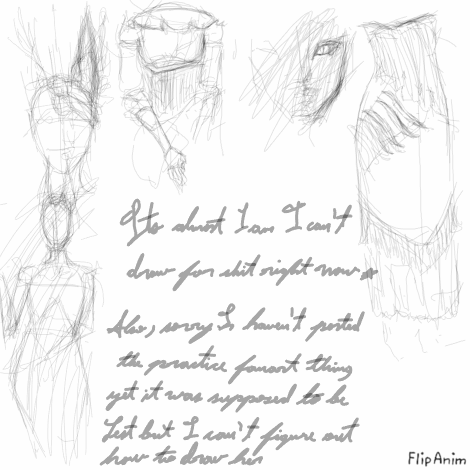 Its almost 1 am I can't
draw for shit right now
Also, sorry I haven't posted
the practice fanart thing
yet it was supposed to be
but I can't figure out
how to draw her
FlipAnim